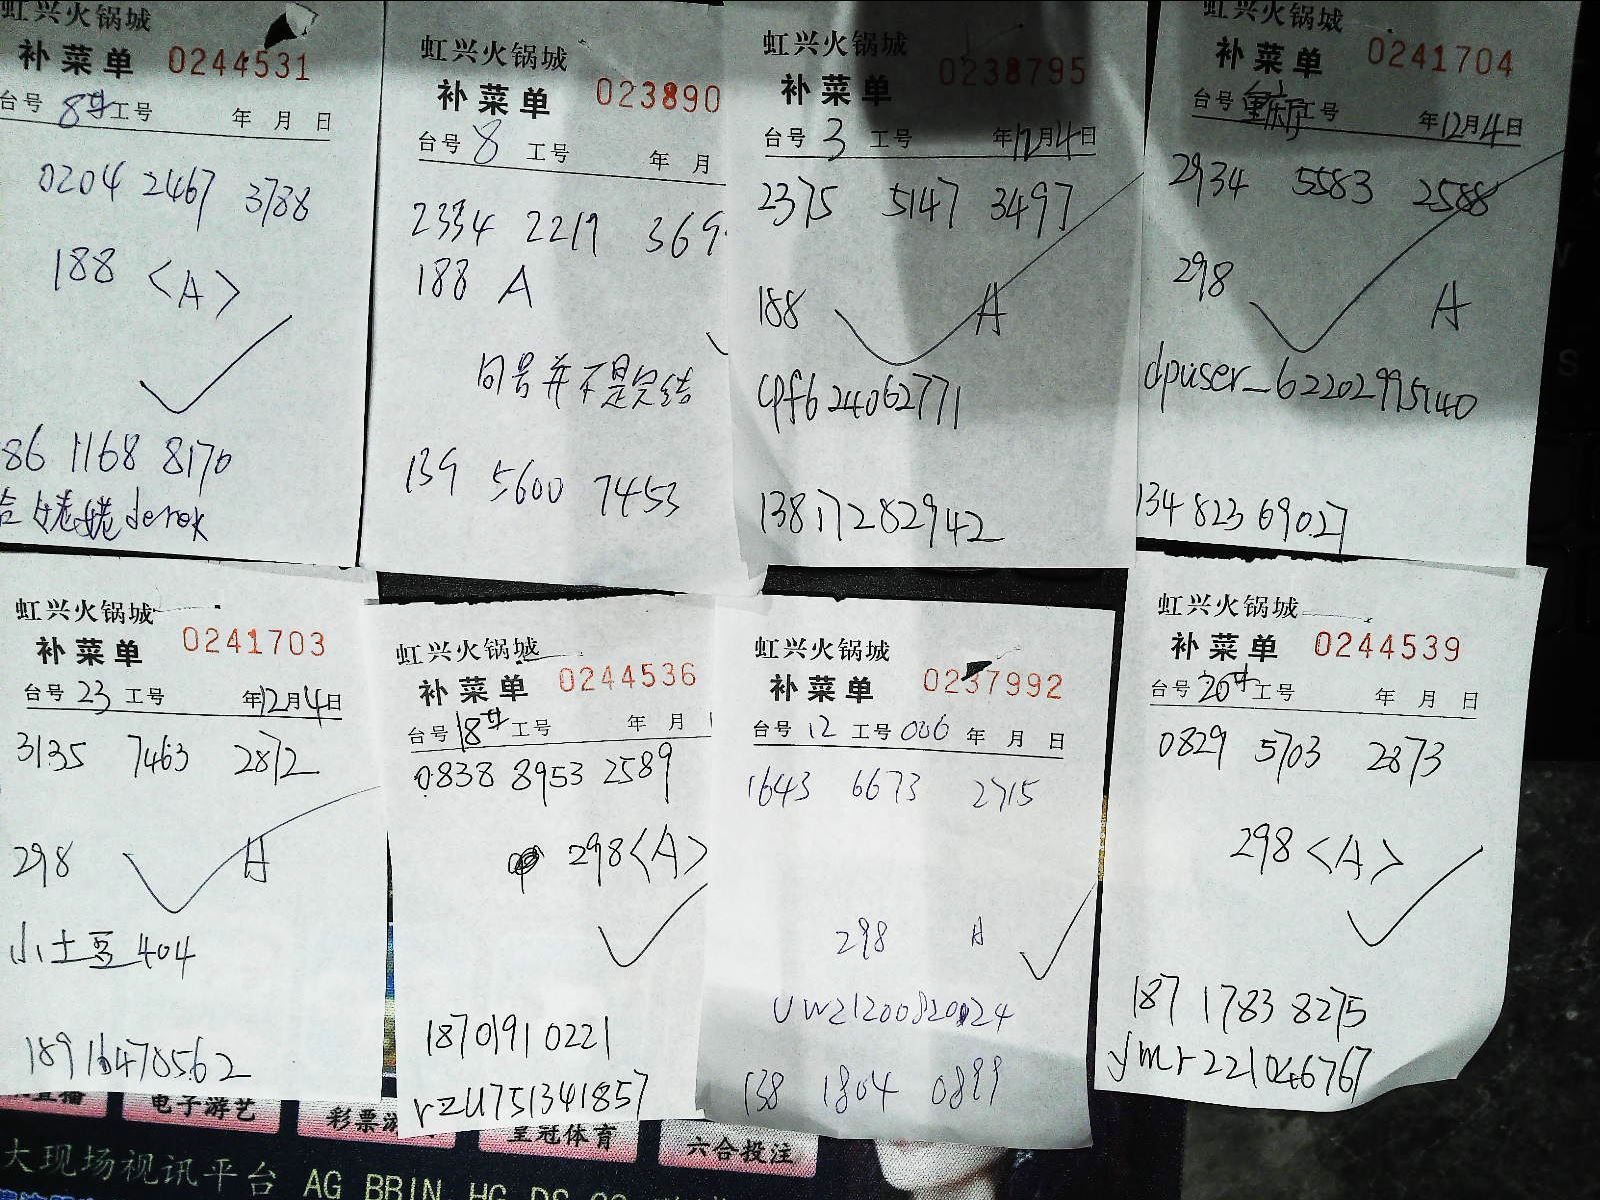 虹兴火锅城
补菜单 0244531
台号 8# 工号 年 月 日
0204 2467 3788
188 <A>
86 1168 8170
derek
虹兴火锅城
补菜单 023890
台号 8 工号 年 月
2334 2219 369
188 A
句号并不是完结
139 5600 7453
虹兴火锅城
补菜单 0238795
台号 3 工号 年12月4日
2375 5147 3497
188 A
cpf624062771
13817282942
虹兴火锅城
补菜单 0241704
台号 工号 年12月4日
2934 5583 2588
298 A
dpuser_62202995140
134 823 69027
虹兴火锅城
补菜单 0241703
台号 23 工号 年12月4日
3135 7463 2872
298 A
小土豆404
18916478562
虹兴火锅城
补菜单 0244536
台号 18# 工号 年 月
0838 8953 2589
298<A>
1870191 0221
rzu751341857
虹兴火锅城
补菜单 0237992
台号 12 工号 006 年 月 日
1643 6673 2715
298 A
UW21200820024
138 1804 0899
虹兴火锅城
补菜单 0244539
台号 20# 工号 年 月 日
0829 5703 2873
298 <A>
187 1783 8275
ymr221046767
直播 电子游艺 彩票游 皇冠体育 六合投注
大现场视讯平台 AG BBIN HG DS